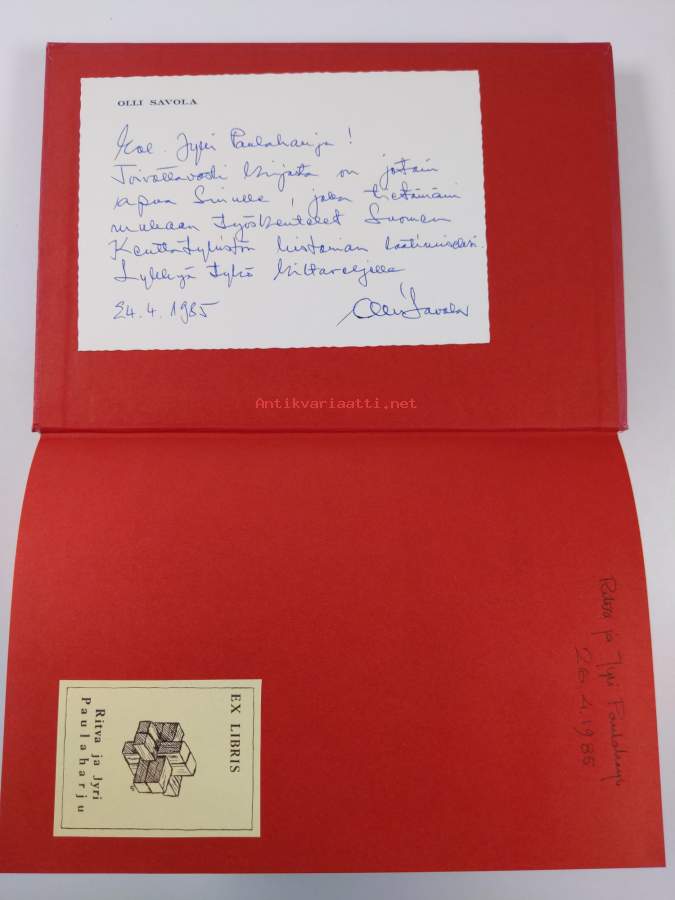 OLLI SAVOLA
Jyri Paulaharju!
Toivottavasti kirjasta on jotain
apua Sinulle, joka tietämäni
mukaan työskentelet Suomen
Kenttätykistön historian laatimiseksi.
Lykkyä tykö
24.4.1985 Olli Savola
Antikvariaatti.net
Ritva ja Jyri Paulaharju
26.4.1985
EX LIBRIS
Ritva ja Jyri
Paulaharju